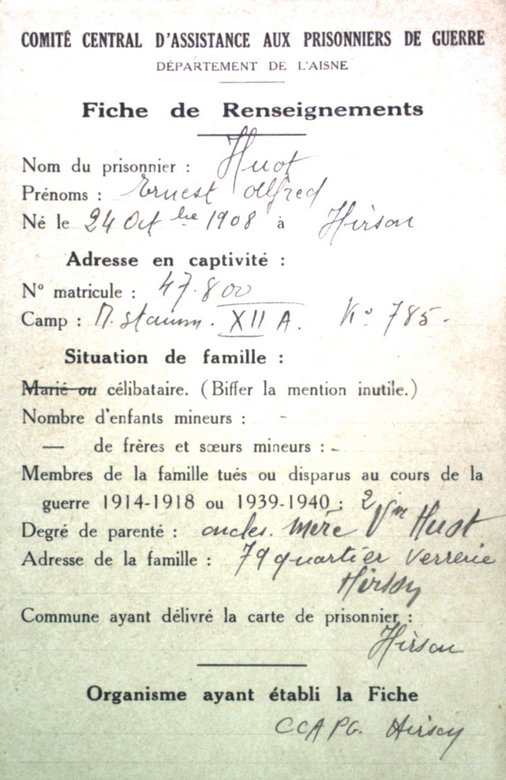 COMITÉ CENTRAL D'ASSISTANCE AUX PRISONNIERS DE GUERRE
DÉPARTEMENT DE L'AISNE
Fiche de Renseignements
Nom du prisonnier : Huot
Prénoms : Ernest Alfred
Né le 24 Octbre 1908 à Hirson
Adresse en captivité :
N° matricule : 47.800
Camp : M. Stamm. XII A. Ko 785-
Situation de famille :
Marié ou célibataire. (Biffer la mention inutile.)
Nombre d'enfants mineurs : -
— de frères et sœurs mineurs : -
Membres de la famille tués ou disparus au cours de la
guerre 1914-1918 ou 1939-1940 : 2
Degré de parenté : oncles. mère Vve Huot
Adresse de la famille : 79 quartier verrerie
Hirson
Commune ayant délivré la carte de prisonnier :
Hirson
Organisme ayant établi la Fiche
CCAPG. Hirson